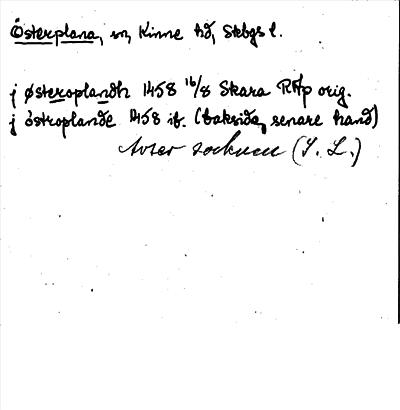 Österplana, sn, Kinne hd, Skbgs l.
j østeroplandh 1458 16/8 Skara RAp orig.
j østroplande 1458 ib. (baksida, senare hand)
Avser socknen (I. L.)